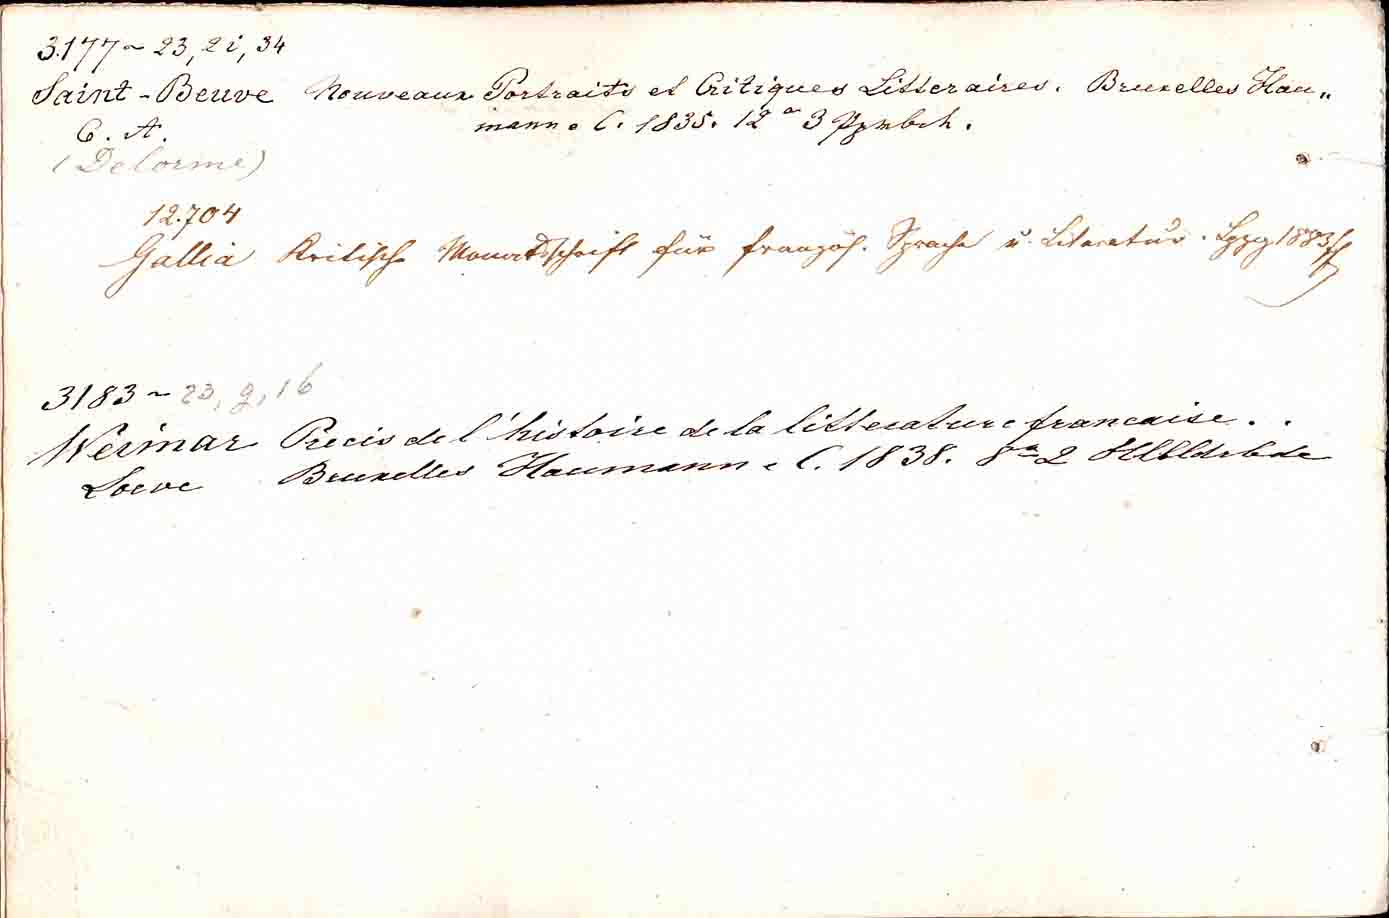 3177~ 23, 2i, 34
Saint-Beuve Nouveaux Portraits et Critiques Litteraires. Bruxelles Hau„
C. A. mann e C. 1836. 12° 3 Ppnbch.
(Delorme)
12.704
Gallia Kritische Monatsschrift für französ. Sprache u. Literatur. Lpzg 1883 ff
3183~ 23, g, 16
Weimar Precis de l'histoire de la litterature francaise. .
Loeve Bruxelles Haumann e C. 1838. 8° 2 Hlbldrbde